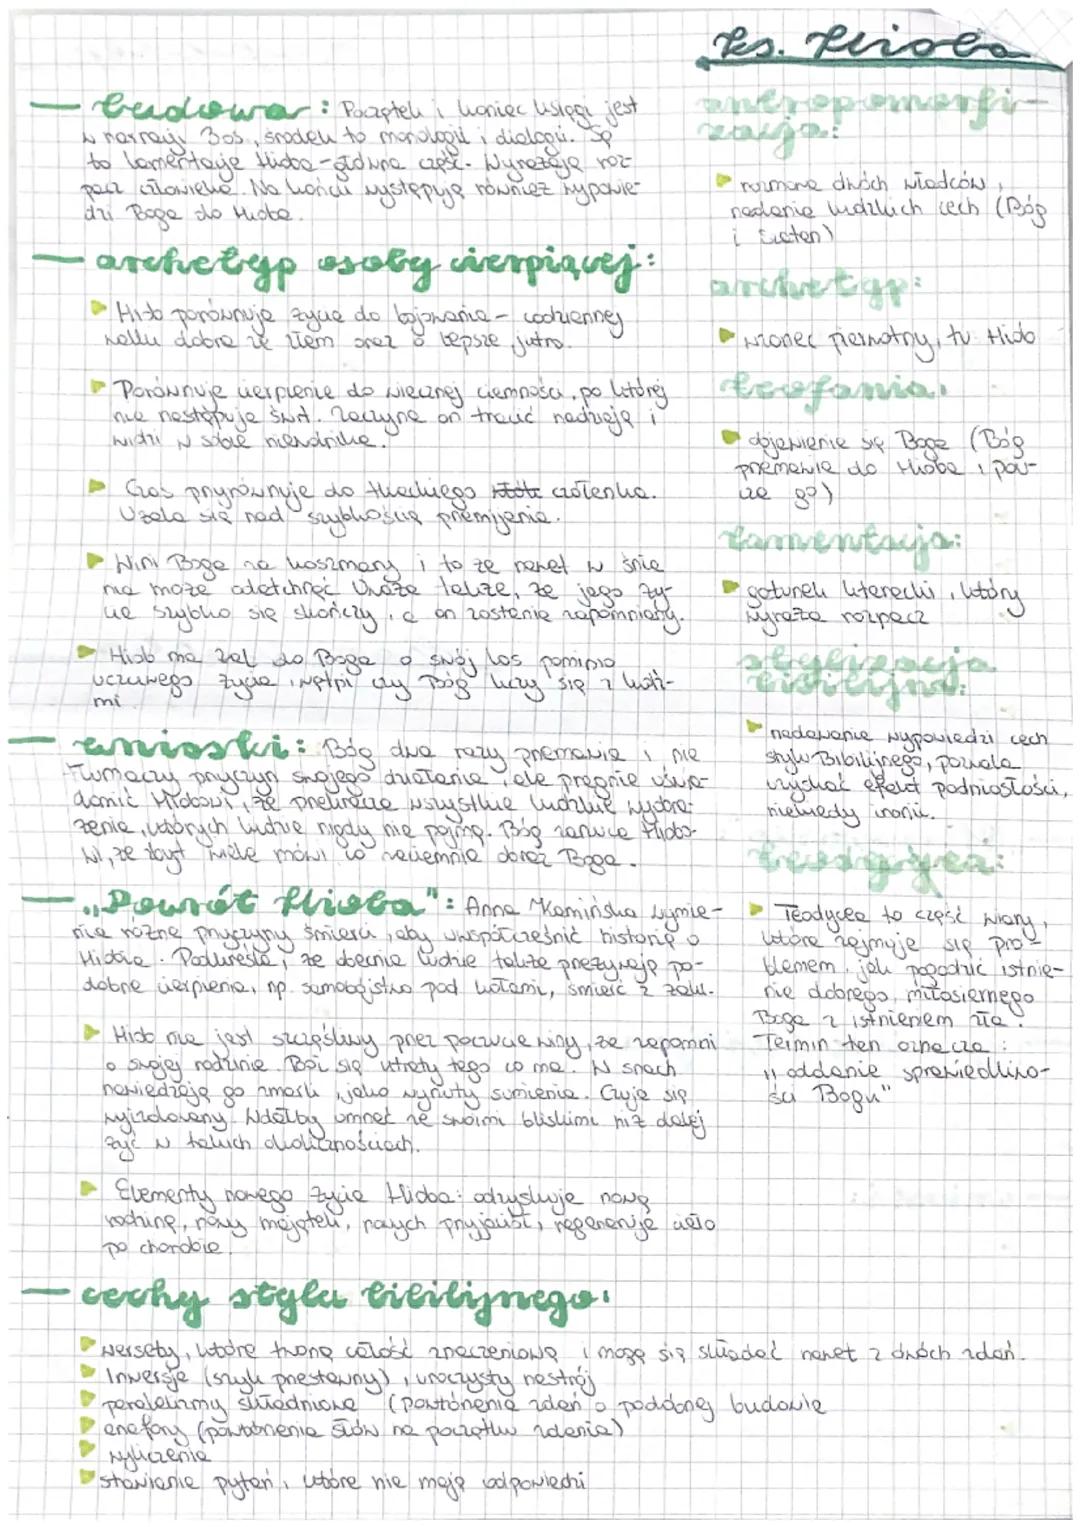 ks. Hioba
— budowa: Początek i koniec księgi jest
w narracji 3os., środek to monologii i dialogii. Są
to lamentacje Hioba - główna część. Wyrażają roz-
pacz człowieka. Na końcu występują również wypowie-
dzi Boga do Hioba.
— archetyp osoby cierpiącej:
Hiob porównuje życie do bojowania - codziennej
walki dobra ze złem oraz o lepsze jutro.
Porównuje cierpienie do wiecznej ciemności, po której
nie następuje świt. Zaczyna on tracić nadzieję i
widzi w sobie niewolnika.
Czas przyrównuje do tkackiego czółenka.
Użala się nad szybkością przemijania.
Wini Boga za koszmary i to że nawet w śnie
nie może odetchnąć. Uważa także, że jego ży-
cie szybko się skończy, a on zostanie zapomniany.
Hiob ma żal do Boga o swój los pomimo
uczciwego życia, wątpi czy Bóg liczy się z ludź-
mi.
— wnioski: Bóg dwa razy przemawia i nie
tłumaczy przyczyn swojego działania, ale pragnie uświa-
domić Hiobowi, że przekracza wszystkie ludzkie wyobra-
żenia, których ludzie nigdy nie pojmą. Bóg zarzuca Hiobo-
wi, że zbyt wiele mówi co zaciemnia obraz Boga.
— „Powrót Hioba": Anna Kamińska wymie-
nia różne przyczyny śmierci, aby uwspółcześnić historię o
Hiobie. Podkreśla, że obecnie ludzie także przeżywają po-
dobne cierpienia, np. samobójstwo pod kołami, śmierć z
Hiob nie jest szczęśliwy przez poczucie winy, że zapomni
o swojej rodzinie. Boi się utraty tego co ma. W snach
nawiedzają go zmarli, jako wyrzuty sumienia. Czuje się
wyizolowany. Wolałby umrzeć ze swoimi bliskimi niż dalej
żyć w takich okolicznościach.
Elementy nowego życia Hioba: odzyskuje nową
rodzinę, nowy majątek, nowych przyjaciół, regeneruje ciało
po chorobie.
— cechy stylu biblijnego:
wersety, które tworzą całość znaczeniową i mogą się składać nawet z dwóch zdań.
Inwersje (szyk przestawny), uroczysty nastrój
paralelizmy składniowe (powtórzenia zdań o podobnej budowie
anafory (powtórzenia słów na początku zdania)
wyliczenia
stawianie pytań, które nie mają odpowiedzi
antropomorfi-
zacja:
rozmowa dwóch władców,
nadanie ludzkich cech (Bóg
i Szatan)
archetyp:
wzorzec pierwotny, tu Hiob
teofania:
objawienie się Boga (Bóg
przemawia do Hioba i pou-
cza go)
lamentacja:
gatunek literacki, który
wyraża rozpacz
stylizacja
biblijna:
nadawanie wypowiedzi cech
stylu Biblijnego, pozwala
uzyskać efekt podniosłości,
niekiedy ironii.
teodycea:
Teodycea to część wiary,
która zajmuje się pro-
blemem, jak pogodzić istnie-
nie dobrego, miłosiernego
Boga z istnieniem zła.
Termin ten oznacza:
„oddanie sprawiedliwo-
ści Bogu"